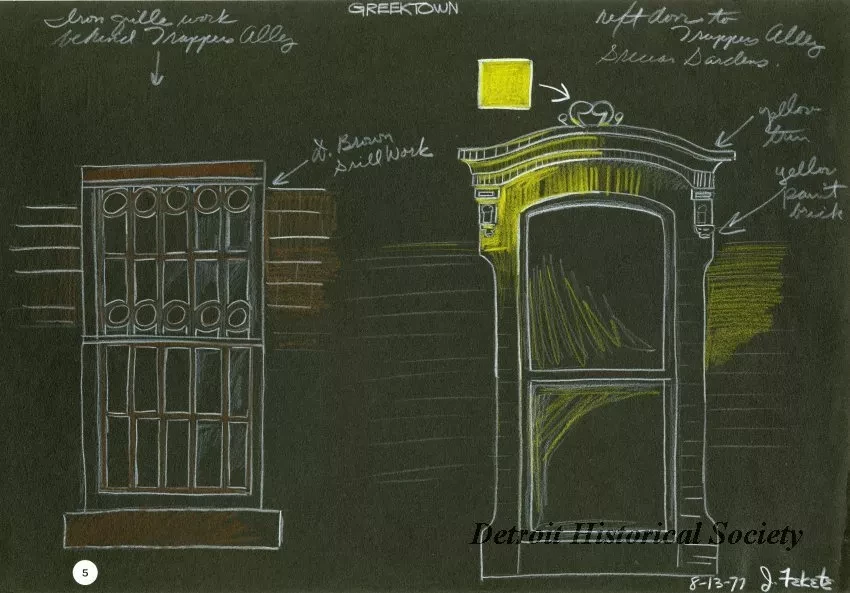 GREEKTOWN
Iron grille work
behind Trappers Alley
next door to
Trappers Alley
Gardens.
D. Brown
Grill Work
yellow
trim
yellow
paint
brick
Detroit Historical Society
5
8-13-77 J. Fekete